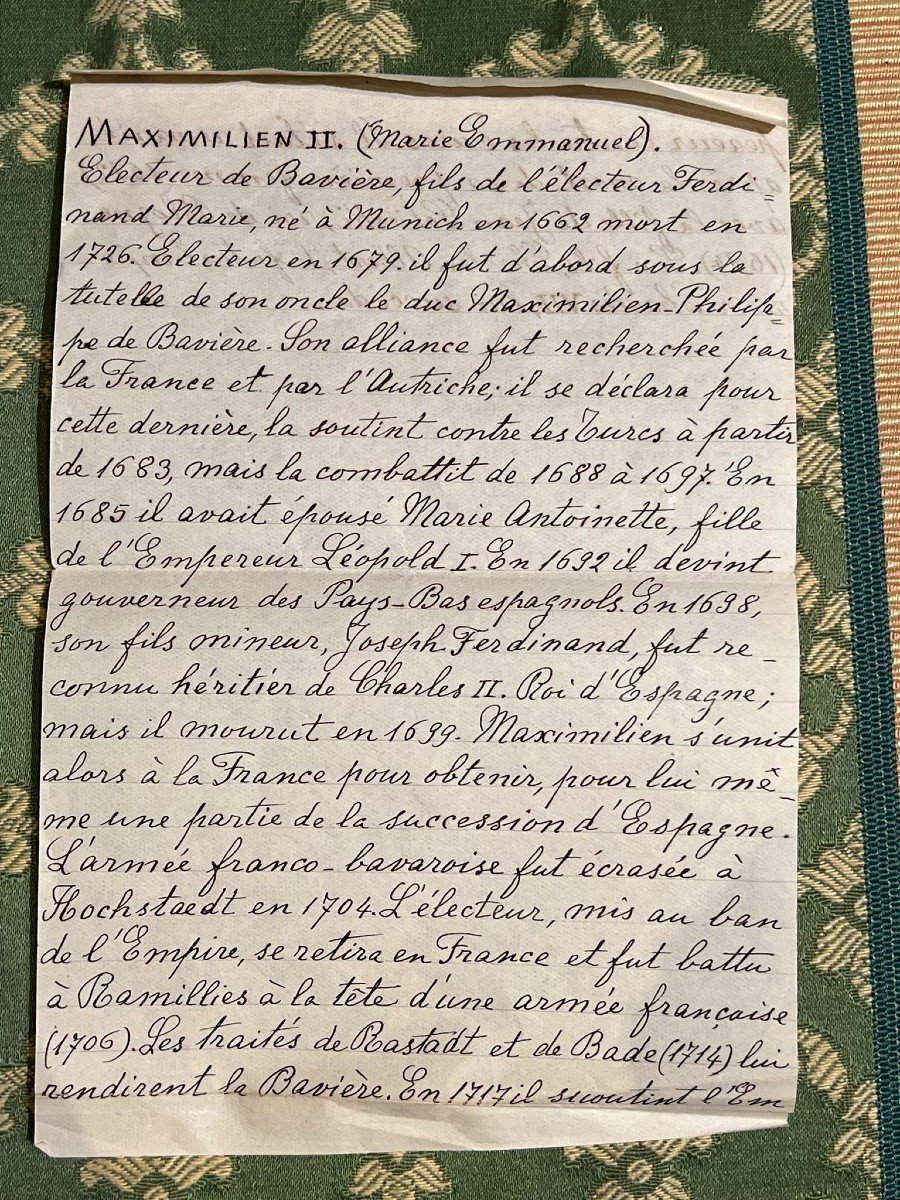 MAXIMILIEN II. (Marie Emmanuel).
Electeur de Bavière, fils de l'électeur Ferdi=
nand Marie, né à Munich en 1662 mort en
1726. Electeur en 1679. il fut d'abord sous la
tutelle de son oncle le duc Maximilien-Philip=
pe de Bavière. Son alliance fut recherchée par
la France et par l'Autriche; il se déclara pour
cette dernière, la soutint contre les Turcs à partir
de 1683, mais la combattit de 1688 à 1697. En
1685 il avait épousé Marie Antoinette, fille
de l'Empereur Léopold I. En 1692 il devint
gouverneur des Pays-Bas espagnols. En 1698,
son fils mineur, Joseph Ferdinand, fut re-
connu héritier de Charles II. Roi d'Espagne;
mais il mourut en 1699. Maximilien s'unit
alors à la France pour obtenir, pour lui mê-
me une partie de la succession d'Espagne.
L'armée franco-bavaroise fut écrasée à
Hochstaedt en 1704. L'électeur, mis au ban
de l'Empire, se retira en France et fut battu
à Ramillies à la tête d'une armée française
(1706). Les traités de Rastadt et de Bade (1714) lui
rendirent la Bavière. En 1717 il scoutint l'Em